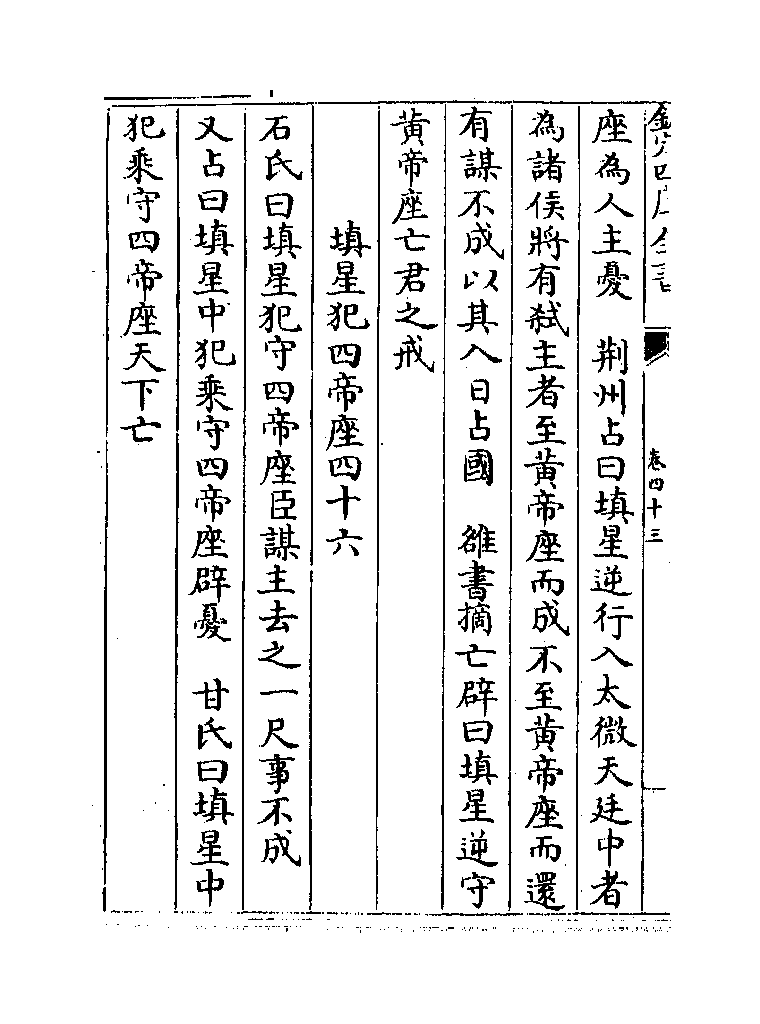 欽定四庫全書
卷四十三
座為人主憂　荆州占曰填星逆行入太微天廷中者
為諸侯將有弑主者至黄帝座而成不至黄帝座而還
有謀不成以其入日占國　雒書摘亡辟曰填星逆守
黄帝座亡君之戒
填星犯四帝座四十六
石氏曰填星犯守四帝座臣謀主去之一尺事不成
又占曰填星中犯乘守四帝座辟憂　甘氏曰填星中
犯乘守四帝座天下亡